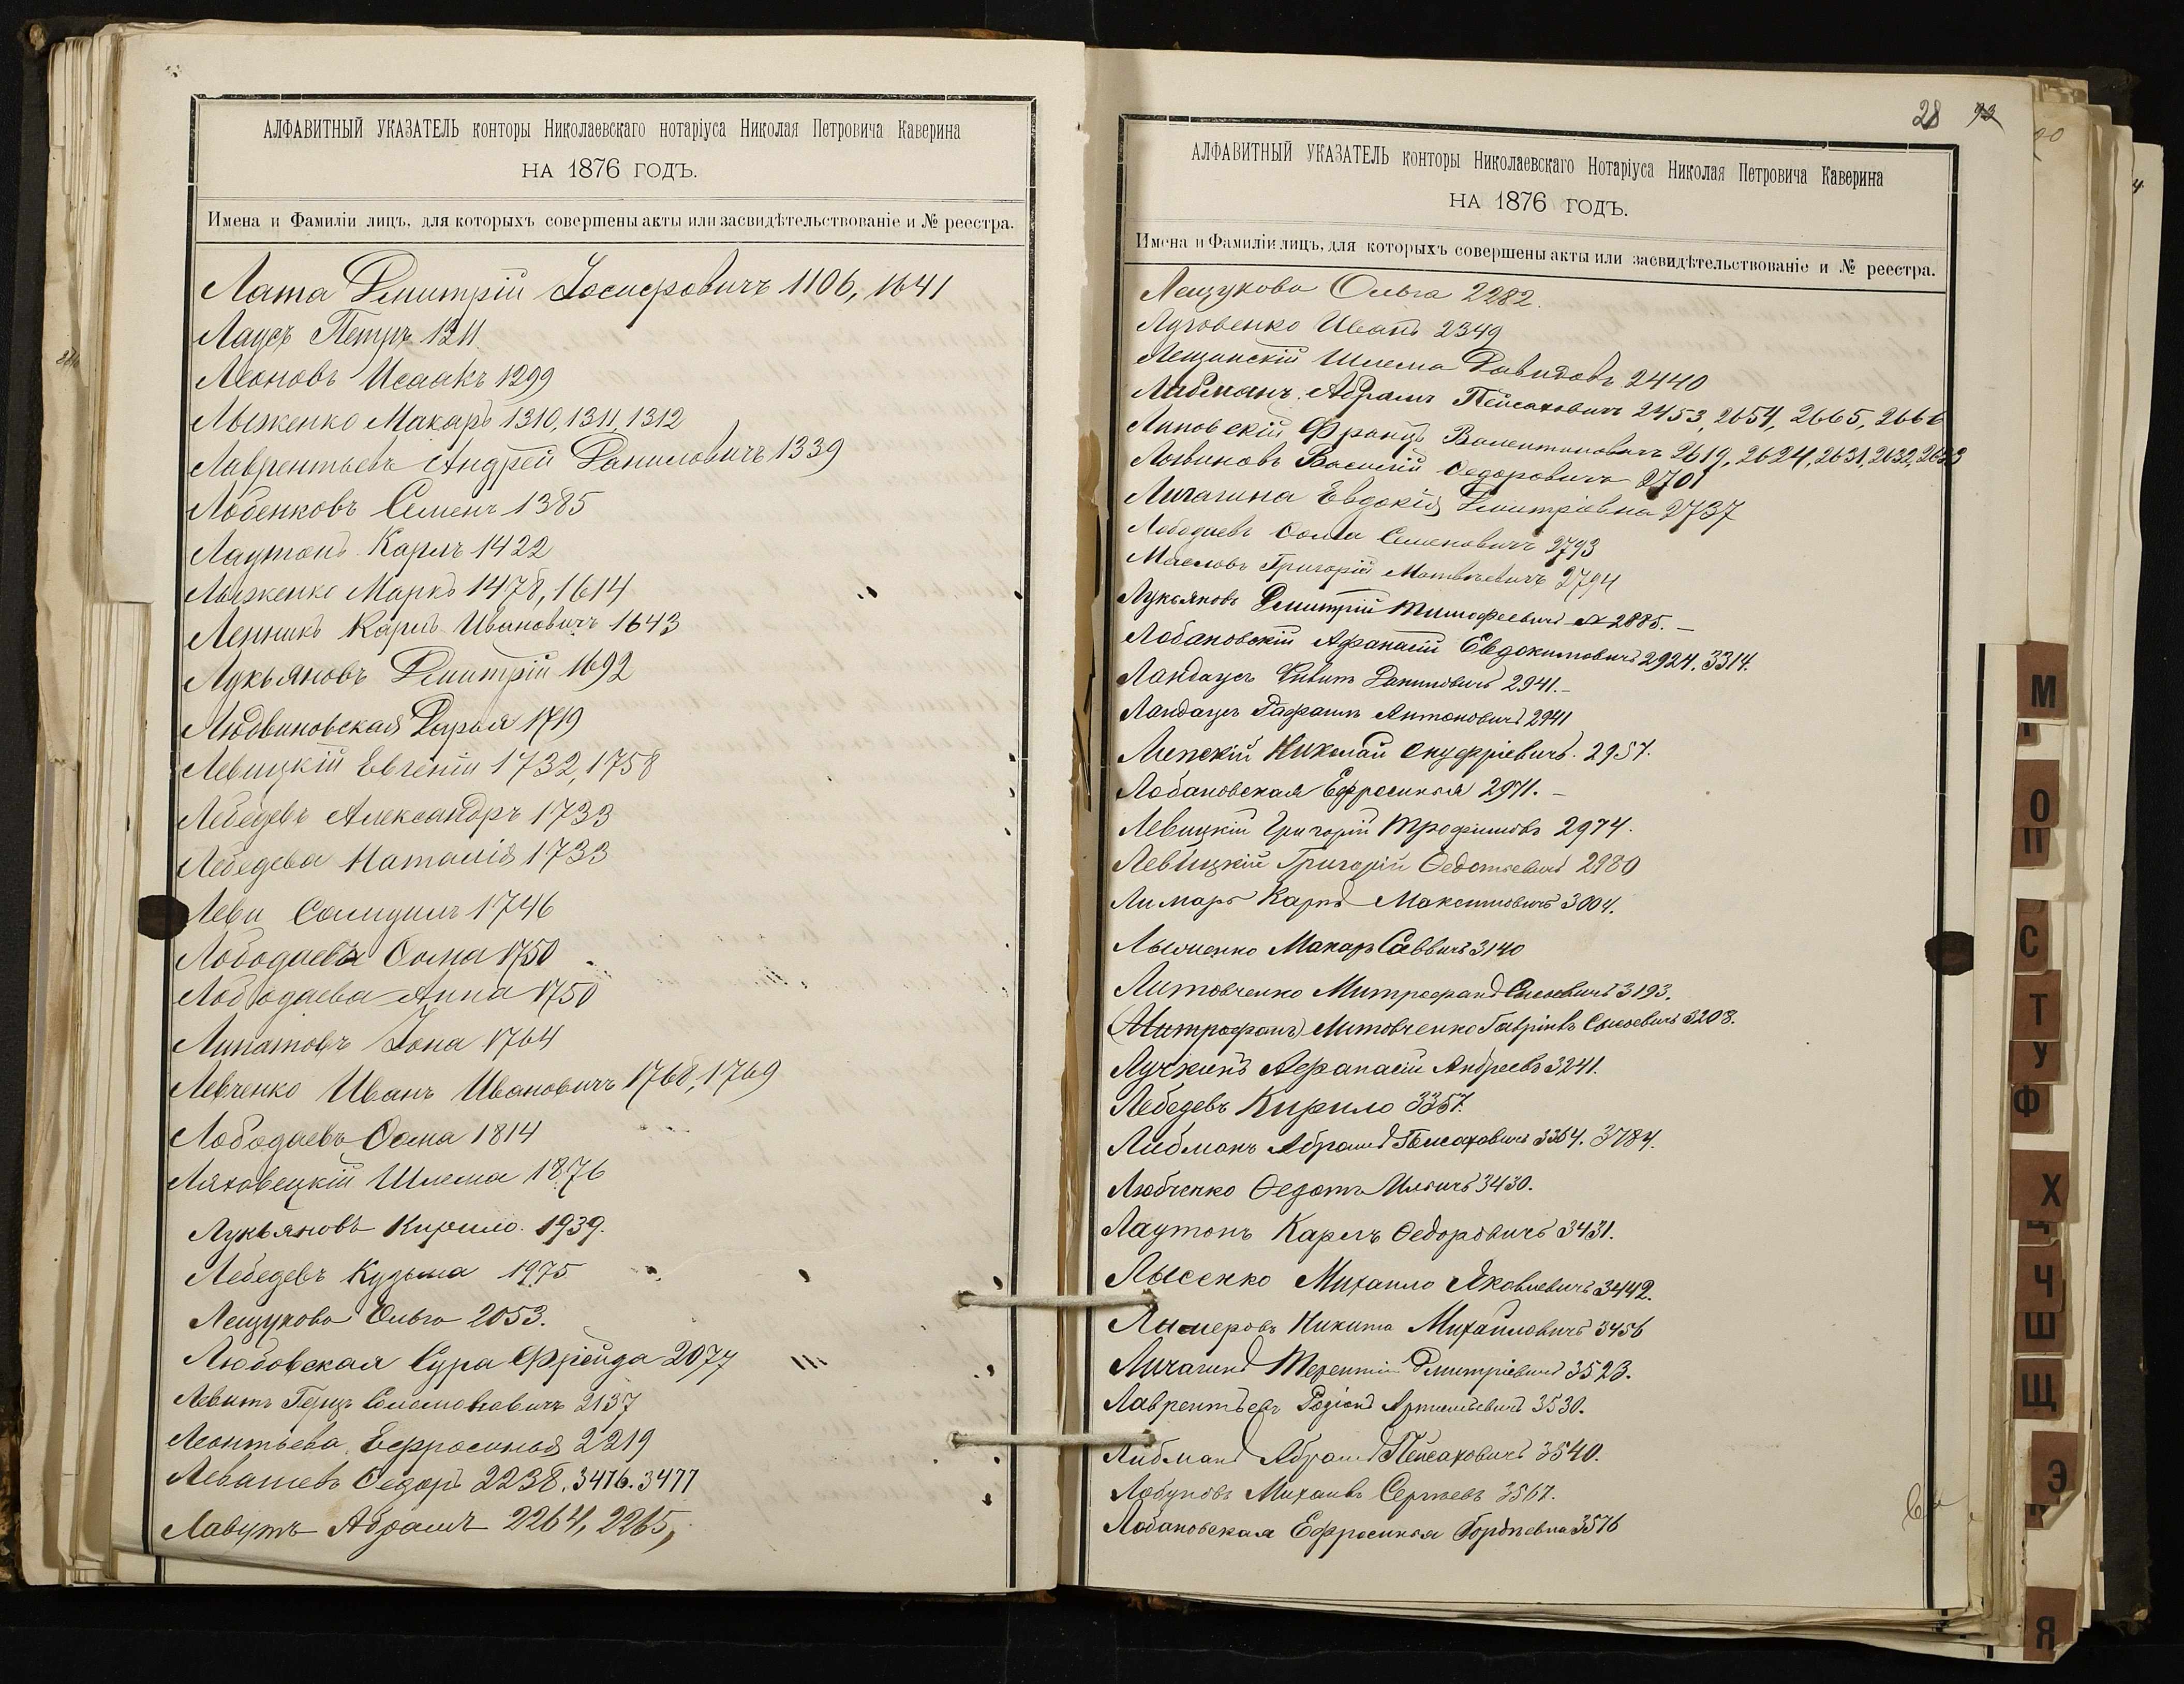 АЛФАВИТНЫЙ УКАЗАТЕЛЬ конторы Николаевскаго нотаріуса Николая Петровича Каверина
НА 1876 ГОДЪ.
Имена и Фамиліи лицъ, для которыхъ совершены акты или засвидѣтельствованіе и № реестра.
Лата Дмитрій Іосифовичъ 1106, 1641
Лаусъ Петръ 1311
Леоновъ Исаакъ 1299
Лыженко Макаръ 1310, 1311, 1312
Лаврентьевъ Андрей Даниловичъ 1339
Лобенковъ Семенъ 1385
Лаутонъ Карлъ 1422
Лыженко Марко 1478, 1614
Карлъ Ивановичъ 1643
Лукьяновъ Дмитрій 1692
Людвиновская Дарья 1719
Левицкій Евгеній 1732, 1758
Лебедевъ Александръ 1733
Лебедева Наталія 1733
Леви Самуилъ 1746
Лободаевъ Ѳома 1750
Лободаева Анна 1750
Липатовъ Іона 1764
Левченко Иванъ Ивановичъ 1768, 1769
Лободаевъ Ѳома 1814
Ляховецкій Шлема 1876
Лукьяновъ Кирило 1939.
Лебедевъ Кузьма 1975
Лещукова Ольга 2053.
Любовская Сура Фрейда 2077
Левитъ Герцъ Соломоновичъ 2137
Леонтьева Ефросинья 2219
Левашевъ Ѳедоръ 2238. 3476. 3477
Лавутъ Абрамъ 2264, 2265,
28
АЛФАВИТНЫЙ УКАЗАТЕЛЬ конторы Николаевскаго Нотаріуса Николая Петровича Каверина
НА 1876 ГОДЪ.
Имена и Фамиліи лицъ, для которыхъ совершены акты или засвидѣтельствованіе и № реестра.
Лещукова Ольга 2282.
Луговенко Иванъ 2349
Лещинскій Шлема Давидовъ 2440
Либманъ Абрамъ Пейсаховичъ 2453, 2654, 2665, 2666
Липовскій Францъ Валентиновичъ 2619, 2624, 2631, 2632, 2633
Литвиновъ Василій Ѳедоровичъ 2701
Личагина Евдокія Дмитріевна 2737
Лободаевъ Ѳома Семеновичъ 2793
Масловъ Григорій Матвѣевичъ 2794
Лукьяновъ Дмитрій Тимофеевичъ № 2885. –
Лобановскій Афанасій Евдокимовичъ 2924. 3314.
Ландаусъ Даниловичъ 2941. –
Ландаусъ Рафаилъ Антоновичъ 2941
Липскій Николай Онуфріевичъ. 2957.
Лобановская Ефросинья 2971. –
Левицкій Григорій Трофимовъ 2974.
Левицкій Григорій Ѳедотьевичъ 2980
Лимаръ Карпъ Максимовичъ 3004.
Макаръ Саввичъ 3140
Литовченко Митрофанъ Сысоевичъ 3193.
(Митрофанъ) Литовченко Гавріилъ Сысоевичъ 3208.
Лучкинъ Афанасій Андреевъ 3241.
Лебедевъ Кирило 3357.
Либманъ Абрамъ Пейсаховичъ 3364. 3784.
Любченко Ѳедотъ Ильичъ 3430.
Лаутонъ Карлъ Ѳедоровичъ 3431.
Лысенко Михаило Яковлевичъ 3442.
Никита Михайловичъ 3456
Личагинъ Терентій Дмитріевичъ 3523.
Лаврентьевъ Родіонъ Артемьевичъ 3530.
Либманъ Абрамъ Пейсаховичъ 3540.
Михаилъ Сергѣевъ 3567.
Лобановская Ефросинья Гордѣевна 3576
М
О
П
С
Т
У
Ф
Х
Ч
Ш
Щ
Э
Я